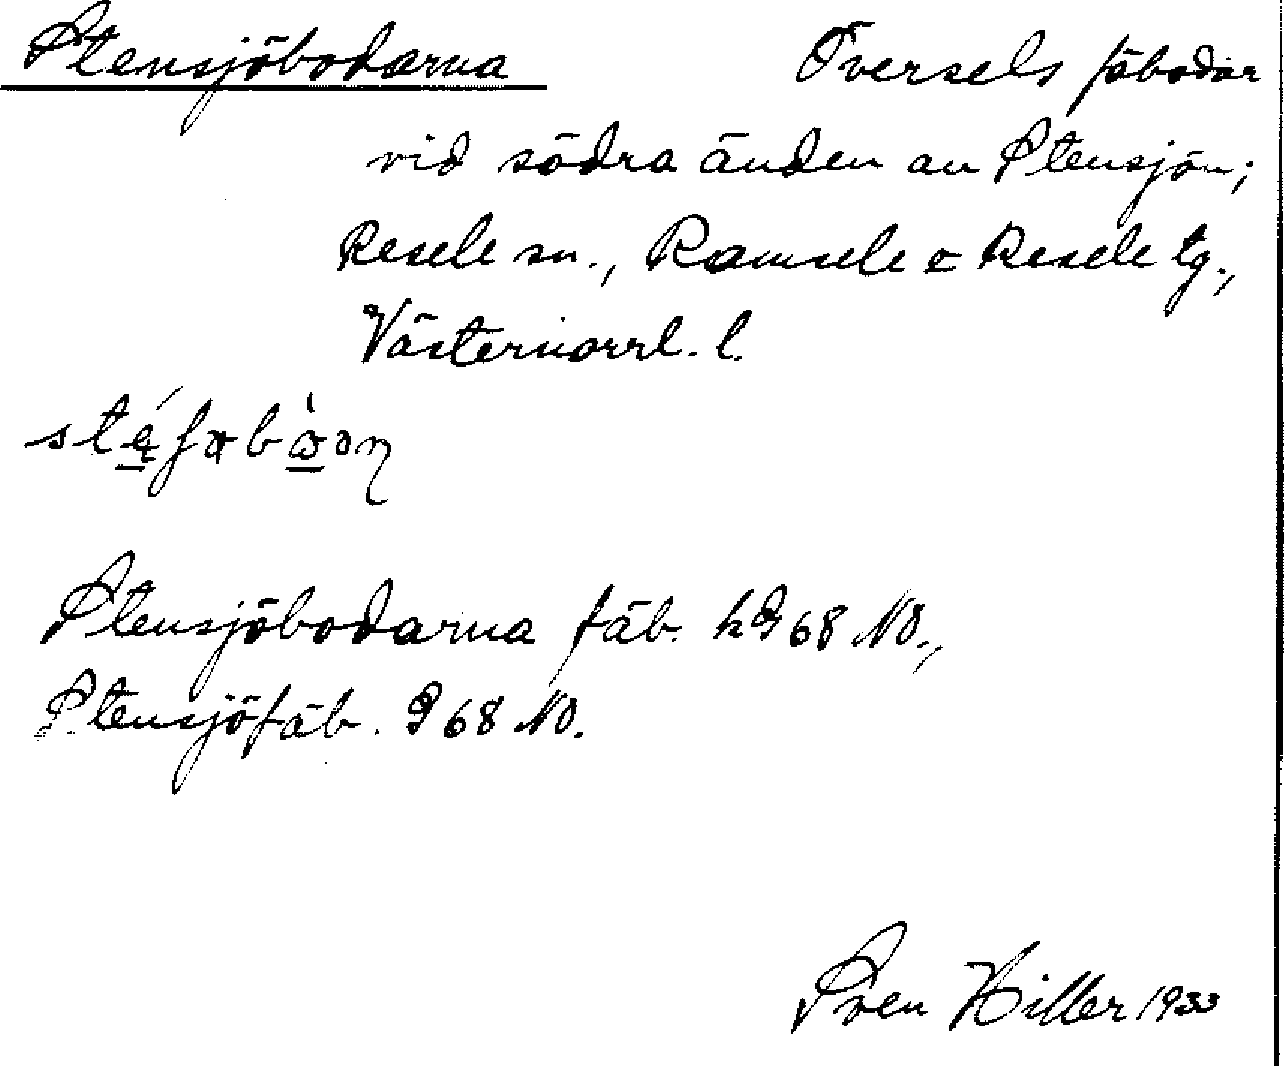 Stensjöbodarna Översels fäbodar
vid södra änden av Stensjön;
Resele sn., Ramsele o Resele tg.,
Västernorrl. l.
Stensjöbodarna fäb. hG 68 NO.,
Stensjöfäb. G 68 NO.
Sven Hiller 1933